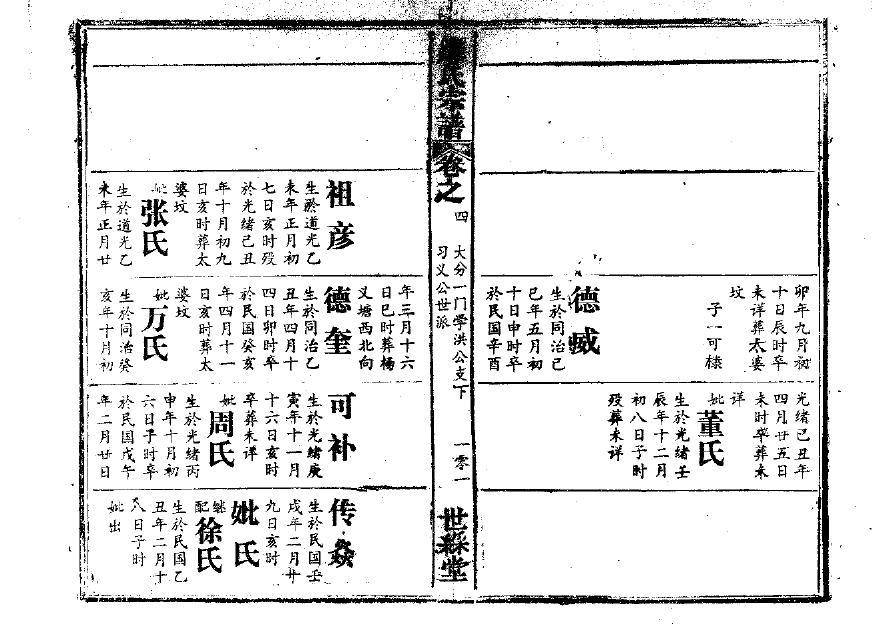 卯年九月初
十日辰时卒
未详葬太婆
坟
子一可棣
德威
生於同治己
巳年五月初
十日申时卒
於民国辛酉
光绪己丑年
四月廿五日
未时卒葬未
详
妣
董氏
生於光绪壬
辰年十二月
初八日子时
殁葬未详
氏宗譜
卷之四
大分一门学洪公支下
习义公世派
一零一
世綵堂
祖彦
生於道光乙
未年正月初
七日亥时殁
於光绪己丑
年十月初九
日亥时葬太
婆坟
妣
张氏
生於道光乙
未年正月廿
年三月十六
日巳时葬杨
义塘西北向
德奎
生於同治乙
丑年四月十
四日卯时卒
於民国癸亥
年四月十一
日亥时葬太
婆坟
妣
万氏
生於同治癸
亥年十月初
可补
生於光绪庚
寅年十一月
十六日亥时
卒葬未详
妣
周氏
生於光绪丙
申年十月初
六日子时卒
於民国戊午
年二月廿日
传焱
生於民国壬
戌年二月廿
九日亥时
妣氏
继配
徐氏
生於民国乙
丑年二月十
八日子时
妣出